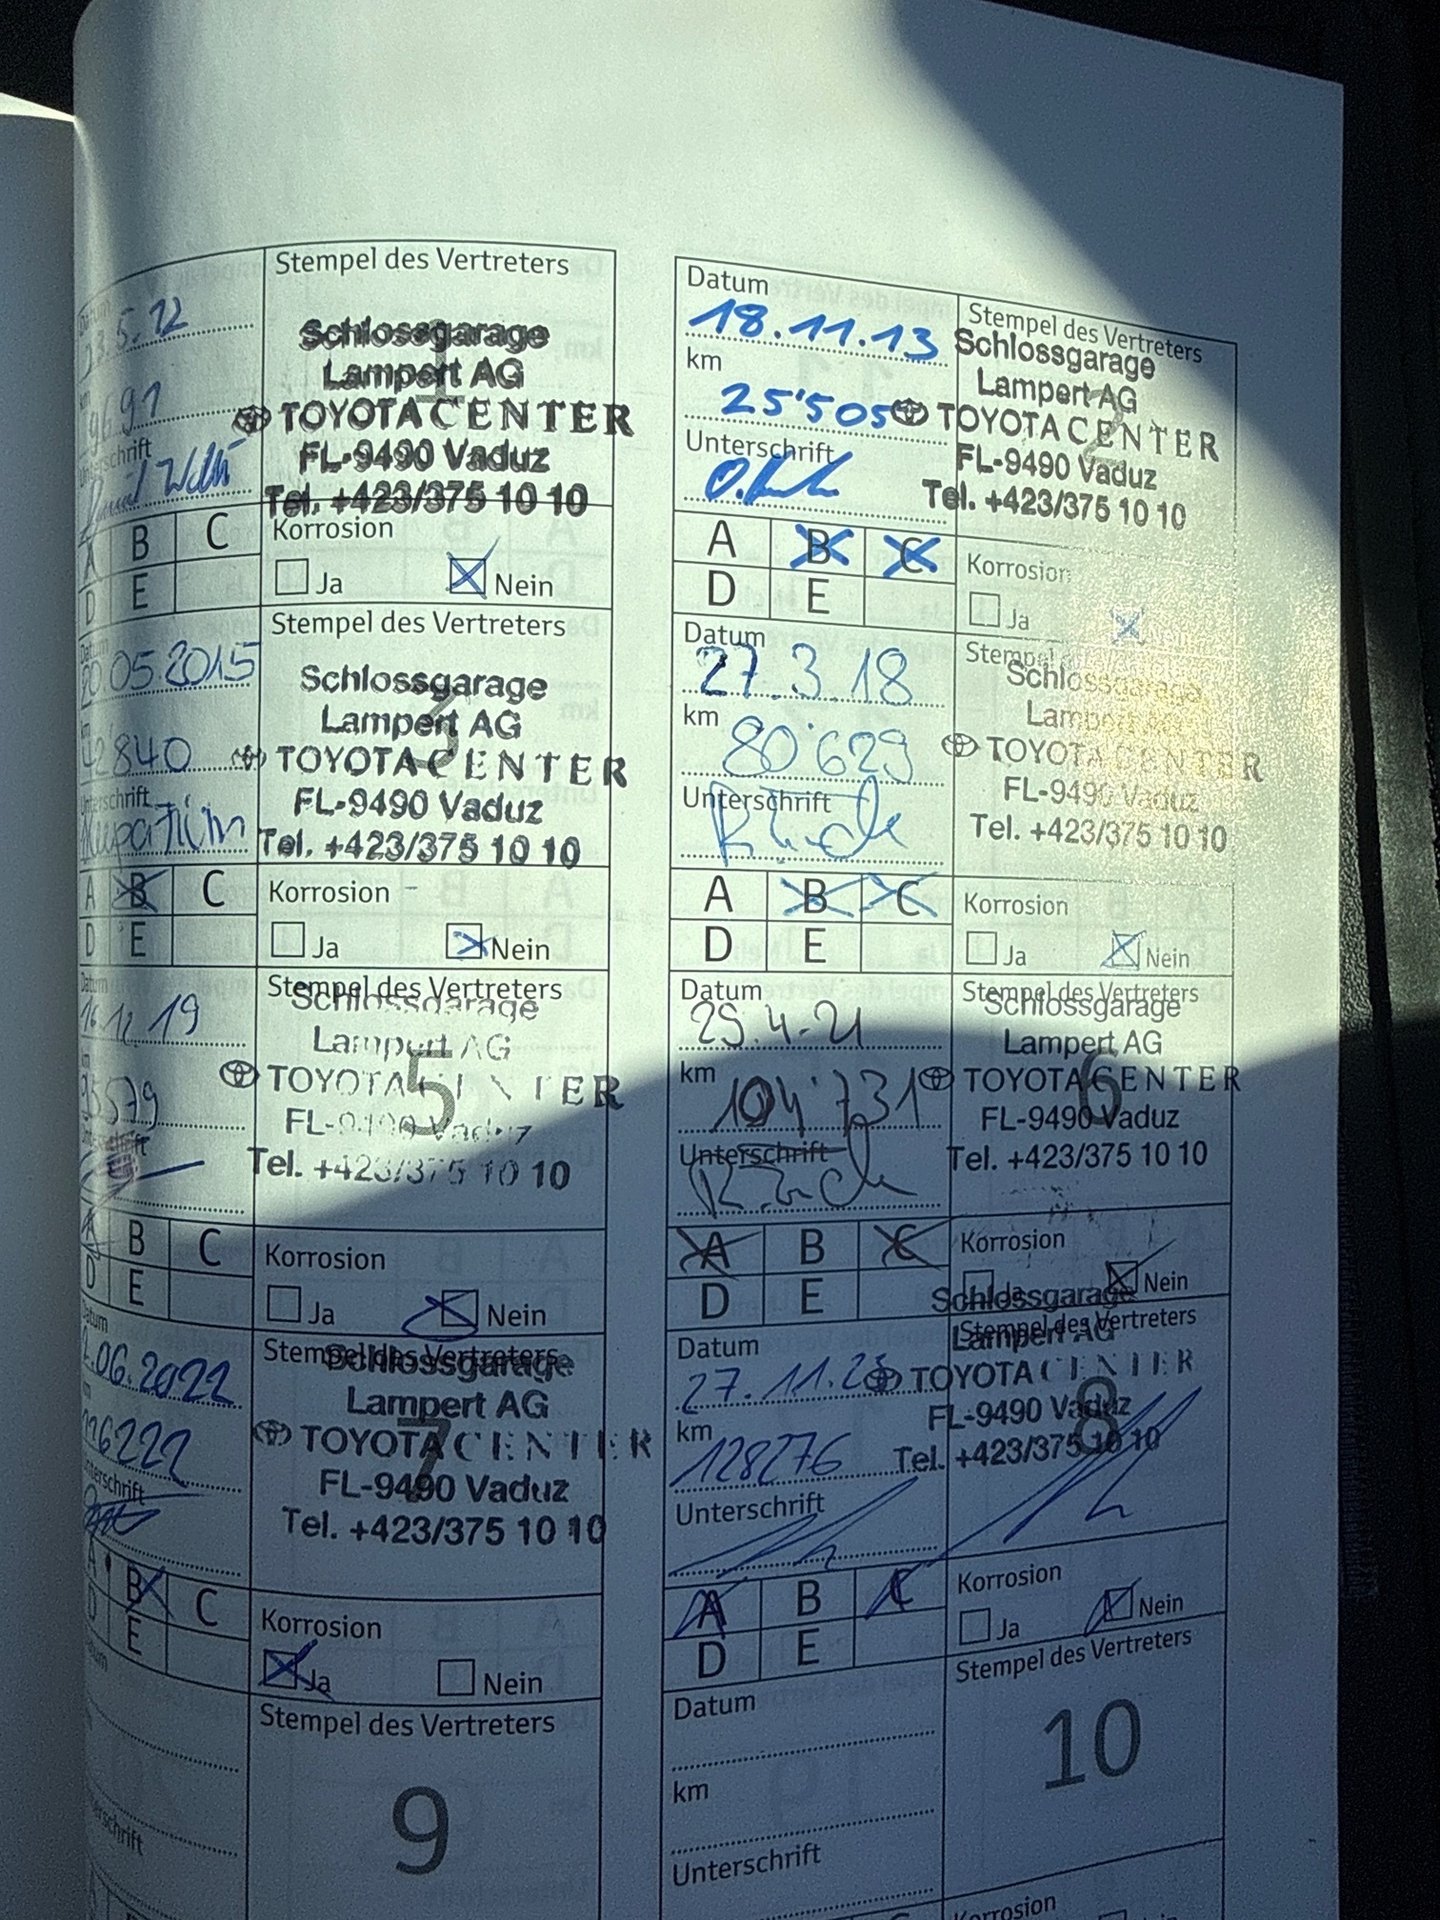 Datum
23.5.12
km
9691
Unterschrift
Stempel des Vertreters
1
Schlossgarage
Lampert AG
TOYOTA CENTER
FL-9490 Vaduz
Tel. +423/375 10 10
A B C
D E
Korrosion
Ja Nein
Datum
18.11.13
km
25'505
Unterschrift
Stempel des Vertreters
2
Schlossgarage
Lampert AG
TOYOTA CENTER
FL-9490 Vaduz
Tel. +423/375 10 10
A B C
D E
Korrosion
Ja
Datum
20.05.2015
km
42840
Unterschrift
Stempel des Vertreters
3
Schlossgarage
Lampert AG
TOYOTA CENTER
FL-9490 Vaduz
Tel. +423/375 10 10
A B C
D E
Korrosion
Ja Nein
Datum
27.3.18
km
80'629
Unterschrift
Schlossgarage
Lampert AG
TOYOTA CENTER
FL-9490 Vaduz
Tel. +423/375 10 10
A B C
D E
Korrosion
Ja Nein
Datum
16.12.19
km
95579
Unterschrift
Stempel des Vertreters
5
Schlossgarage
Lampert AG
TOYOTA CENTER
FL-9490 Vaduz
Tel. +423/375 10 10
A B C
D E
Korrosion
Ja Nein
Datum
29.4.21
km
104'731
Unterschrift
Stempel des Vertreters
6
Schlossgarage
Lampert AG
TOYOTA CENTER
FL-9490 Vaduz
Tel. +423/375 10 10
A B C
D E
Korrosion
Ja Nein
Datum
.06.2022
km
116222
Unterschrift
Stempel des Vertreters
7
Schlossgarage
Lampert AG
TOYOTA CENTER
FL-9490 Vaduz
Tel. +423/375 10 10
A B C
D E
Korrosion
Ja Nein
Datum
27.11.23
km
128276
Unterschrift
Stempel des Vertreters
8
Schlossgarage
Lampert AG
TOYOTA CENTER
FL-9490 Vaduz
Tel. +423/375 10 10
A B C
D E
Korrosion
Ja Nein
Stempel des Vertreters
9
Datum
km
Unterschrift
Stempel des Vertreters
10
Korrosion